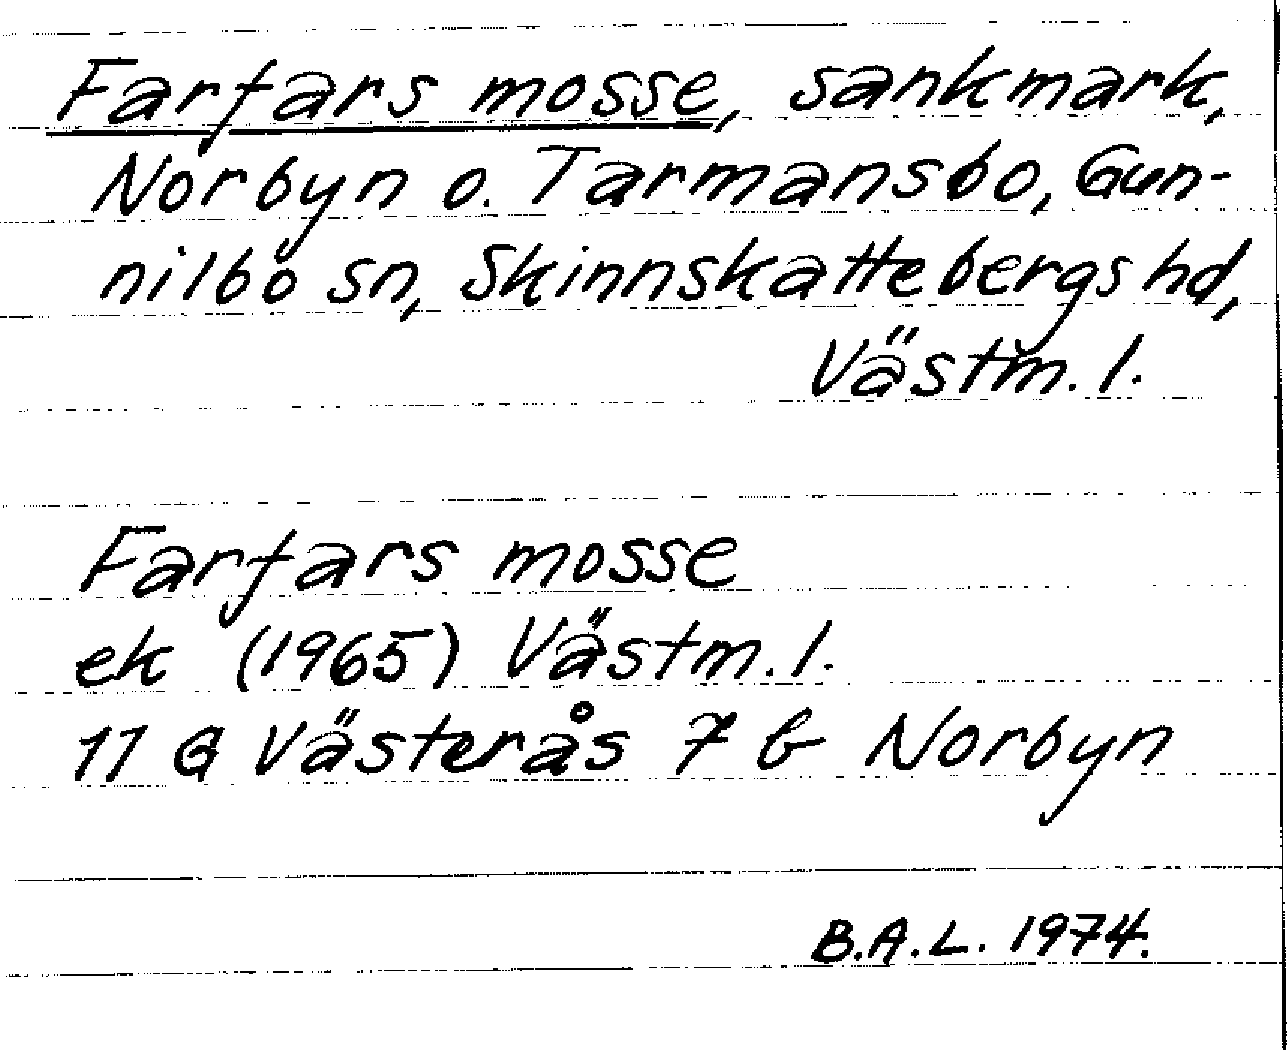 Farfars mosse, sankmark,
Norbyn o. Tarmansbo, Gun-
nilbo sn, Skinnskattebergs hd,
Västm. l.
Farfars mosse
ek (1965) Västm. l.
11 G Västerås 7 b Norbyn
B.A.L. 1974.